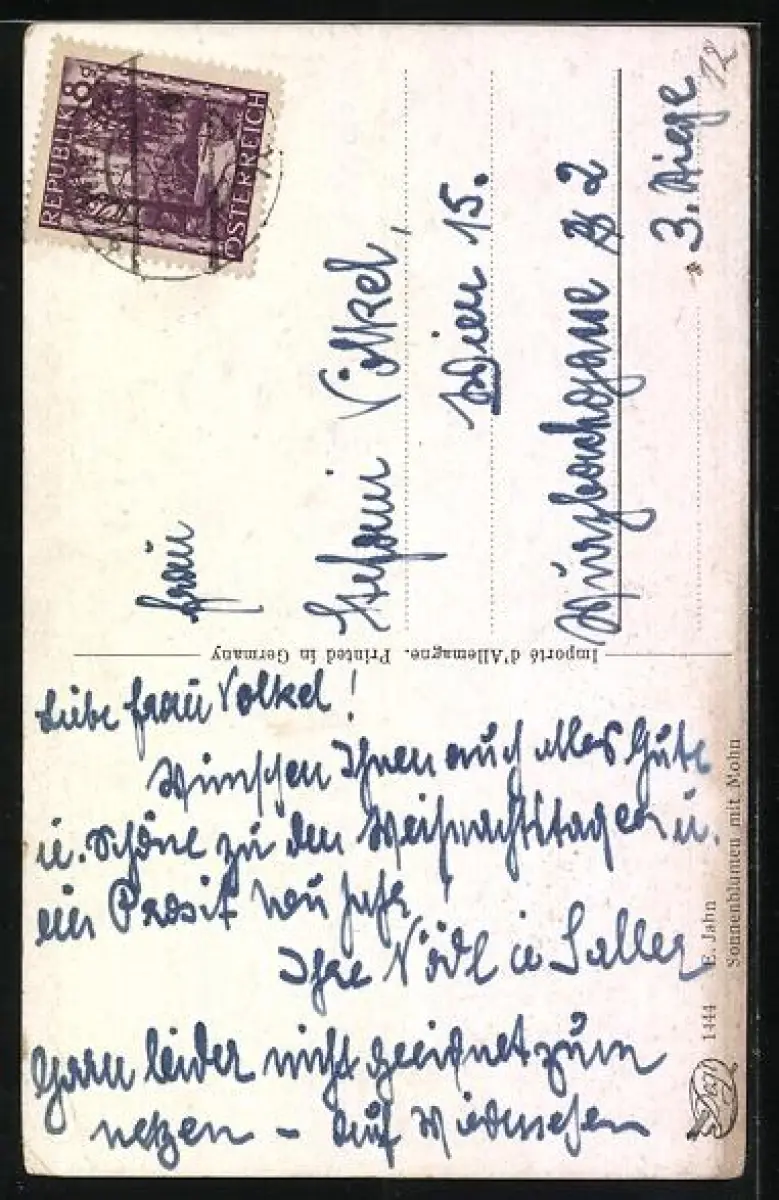 REPUBLIK 8g
ÖSTERREICH
Frau
Stefani Volkel,
Wien 15.
Würzbachgasse 2
3. Stiege
12
Importé d'Allemagne. Printed in Germany
Liebe Frau Volkel!
Wünschen Ihnen auch alles Gute
u. Schöne zu den Weihnachtstagen u.
ein Prosit Neu Jahr!
Ihre Nödl u
Garn leider nicht geeignet zum
netzen – auf Wiedersehen
1444 E. Jahn
Sonnenblumen mit Mohn